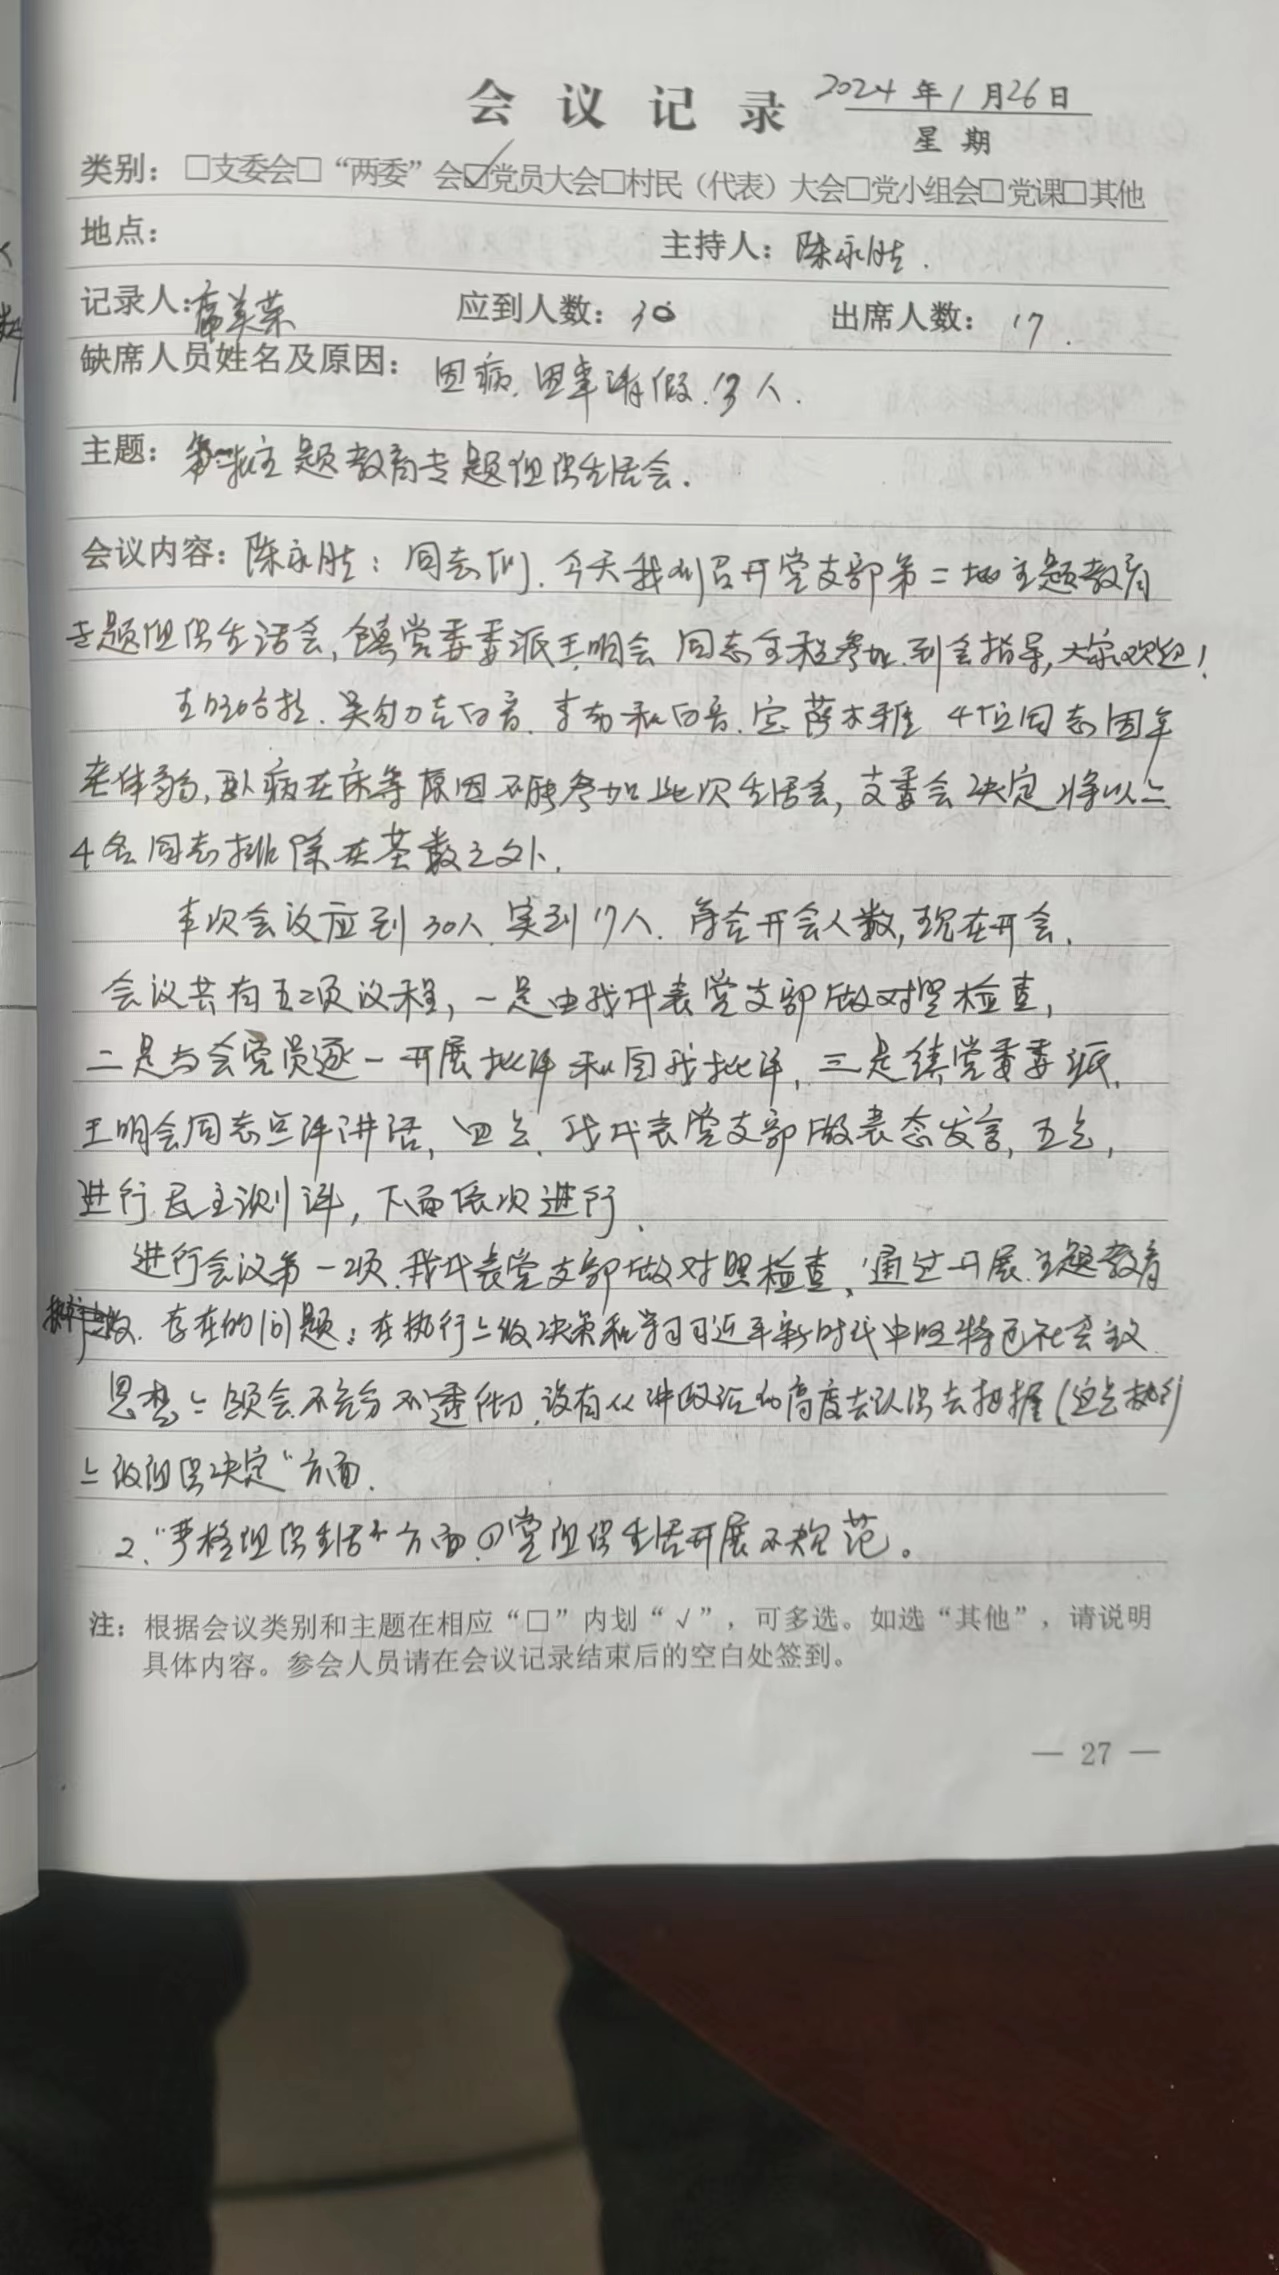 会议记录 2024年1月26日
星期
类别：□支委会□“两委”会☑党员大会□村民（代表）大会□党小组会□党课□其他
地点： 主持人：陈永胜.
记录人：美荣 应到人数：30 出席人数：17.
缺席人员姓名及原因：因病.因事请假.13人.
主题：第二批主题教育专题组织生活会.
会议内容：陈永胜：同志们.今天我们召开党支部第二批主题教育
专题组织生活会,镇党委委派王明会同志全程参加.到会指导,大家欢迎!
4位同志因年
老体弱,卧病在床等原因不能参加此次生活会,支委会决定将以上
4名同志排除在基数之外.
本次会议应到30人.实到17人.符合开会人数,现在开会.
会议共有五项议程,一是由我代表党支部做对照检查,
二是与会党员逐一开展批评和自我批评,三是镇党委委派.
王明会同志点评讲话,四是.我代表党支部做表态发言,五是,
进行民主测评,下面依次进行.
进行会议第一项.我代表党支部做对照检查,通过开展主题教育
存在的问题:在执行上级决策和学习习近平新时代中国特色社会主义
思想上领会不充分不透彻.没有从讲政治的高度去认识去把握(这是执行
上级组织决定"方面.
2、“严格组织生活”方面.①党组织生活开展不规范。
注：根据会议类别和主题在相应“□”内划“√”，可多选。如选“其他”，请说明
具体内容。参会人员请在会议记录结束后的空白处签到。
— 27 —